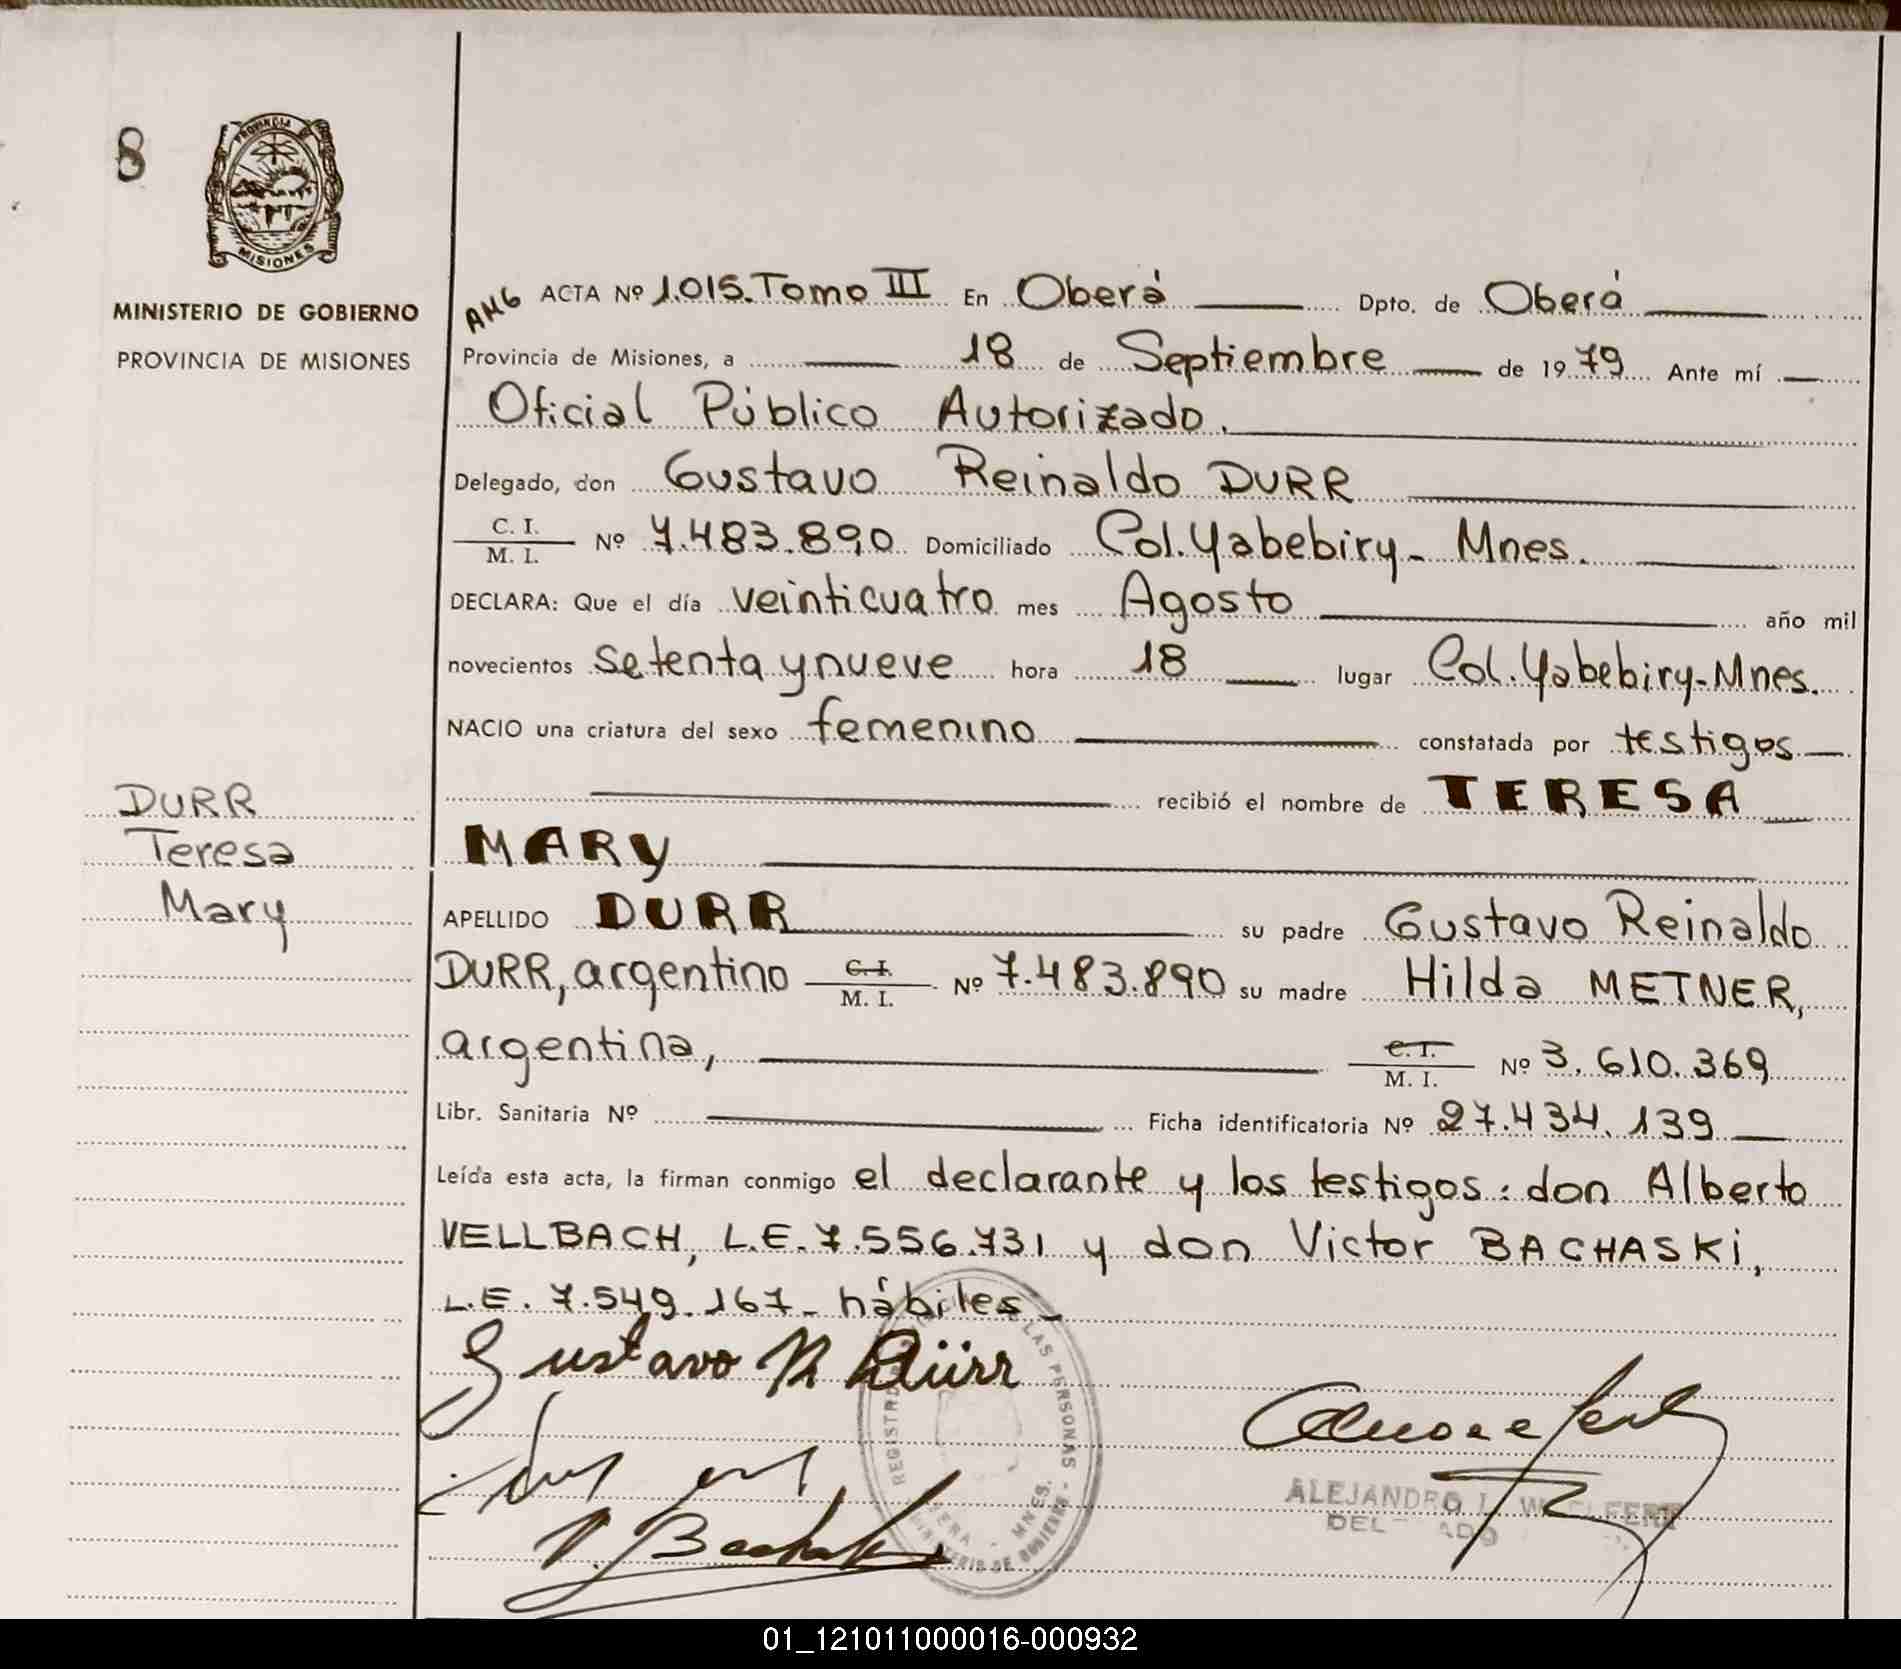 8
PROVINCIA DE
MISIONES
MINISTERIO DE GOBIERNO
PROVINCIA DE MISIONES
AMG ACTA Nº 1.015.Tomo III En Oberá Dpto. de Oberá
Provincia de Misiones, a 18 de Septiembre de 1979 Ante mí
Oficial Público Autorizado.
Delegado, don Gustavo Reinaldo DURR
C. I.
M. I. Nº 7.483.890 Domiciliado Col. Yabebiry - Mnes.
DECLARA: Que el día veinticuatro mes Agosto año mil
novecientos setenta y nueve hora 18 lugar Col. Yabebiry-Mnes.
NACIO una criatura del sexo femenino constatada por testigos
recibió el nombre de TERESA
MARY
DURR
Teresa
Mary
APELLIDO DURR su padre Gustavo Reinaldo
DURR, argentino C. I. M. I. Nº 7.483.890 su madre Hilda METNER,
argentina, C. I. M. I. Nº 3.610.369
Libr. Sanitaria Nº Ficha identificatoria Nº 27.434.139
Leída esta acta, la firman conmigo el declarante y los testigos: don Alberto
VELLBACH, L.E. 7.556.731 y don Victor BACHASKi,
L.E. 7.549.167- hábiles-
Gustavo R Dürr
LAS PERSONAS
MNES.
ALEJANDRO
01_121011000016-000932